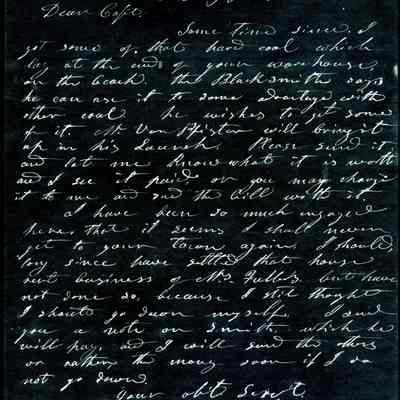 Dear Capt.
Some time since I
got some of that hard coal which
lay at the end of your warehouse,
on the beach. the Blacksmith says
he can use it to some advantage with
other coal he wishes to get some
of it Mr Von Pfister will bring it
up in his Launch. Please send it
and let me know what it is worth
and I see it paid, or you may charge
it to me and send the bill with it
I have been so much engaged
here that it seems I shall never
get to your Town again I should
long since have settled that house
rent business of Mrs. but have
not done so, because I still thought
I should go down myself. I send
you a note on Smith, which he
will pay, and I will send the others
or rather the money soon if I do
not go down.
Your obt Servt.